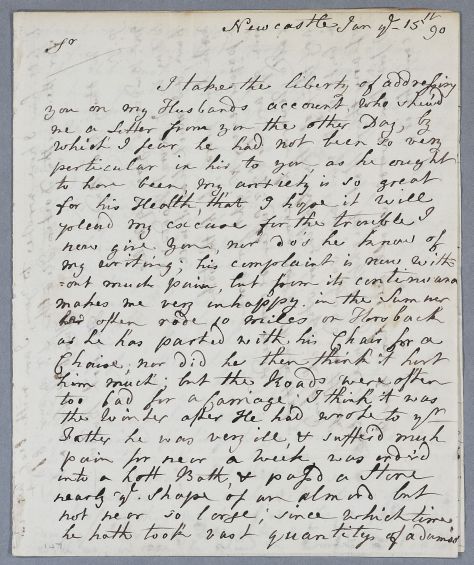 Newcastle Jan ye 15th 90
Sr
I take the liberty of addressing
you on my Husbands account, who shew'd
me a Letter from you the other Day, by
which I fear he had not been so very
particular in his to you, as he ought
to have been, my anxiety is so great
for his Health, that I hope it will
plead my excuse for the trouble I
now give you, nor do's he know of
my writing; his complaint is now with
=out much pain, but from its continuance
makes me very unhappy. in the Summer
he often rode 10 miles on Horsback
as he has parted with his Chair for a
Chaise, nor did he then think it hurt
him much, but the Roads were often
too bad for a Carriage; I think it was
the Winter after He had wrote to yr
Father he was very ill, & sufferd much
pain for near a week, was order'd
into a hott Bath, & pass'd a Stone
nearly ye shape of an almond but
not near so large; since which time
he hath took vast quantitys of